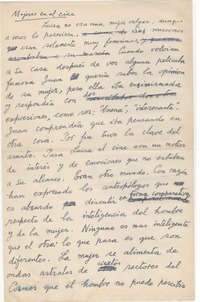 Mujeres en el cine
Luisa no era una mujer vulgar, aunque
a veces lo pareciera. sus reacciones
eran solamente muy femeninas y
su marido. Cuando volvían
a su casa después de ver alguna película
famosa Juan quería saber la opinión
de su mujer, pero ella iba ensimismada
y respondía con
expresiones, como ser, "buena", "interesante".
Juan comprendía que iba pensando en
otra cosa. Por fin tuvo la clave del
asunto. Para Luisa el cine son un motivo
de interés y de emociones que no estaban
a su alcance. Eran otro mundo. Con razón
han expresado los antropólogos que
es absurdo discutir en
respecto de la inteligencia del hombre
y de la mujer. Ninguno es mas inteligente
que el otro: lo que pasa es que son
diferentes. La mujer se alimenta de
ondas astrales de ciertos sectores del
Cosmos que el hombre no puede percibir